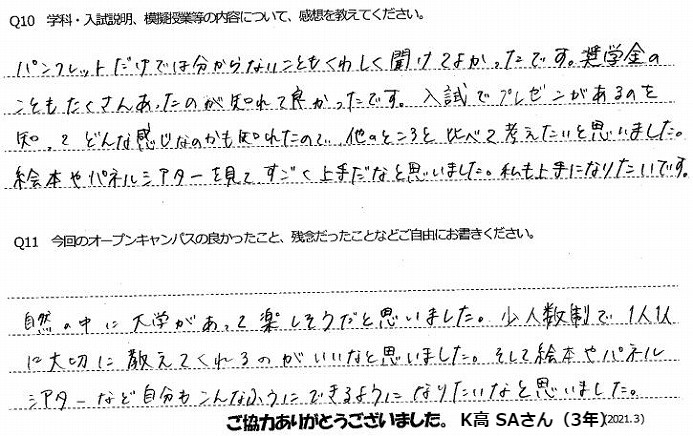 Q10 学科・入試説明、模擬授業等の内容について、感想を教えてください。
パンフレットだけでは分からないこともくわしく聞けてよかったです。奨学金の
こともたくさんあったのが知れて良かったです。入試でプレゼンがあるのを
知ってどんな感じなのかも知れたので、他のところと比べて考えたいと思いました。
絵本やパネルシアターを見て、すごく上手だなと思いました。私も上手になりたいです。
Q11 今回のオープンキャンパスの良かったこと、残念だったことなどご自由にお書きください。
自然の中に大学があって楽しそうだと思いました。少人数制で1人1人
に大切に教えてくれるのがいいなと思いました。そして絵本やパネル
シアターなど自分もこんなふうにできるようになりたいなと思いました。
ご協力ありがとうございました。 K高 SAさん（3年）(2021.3)